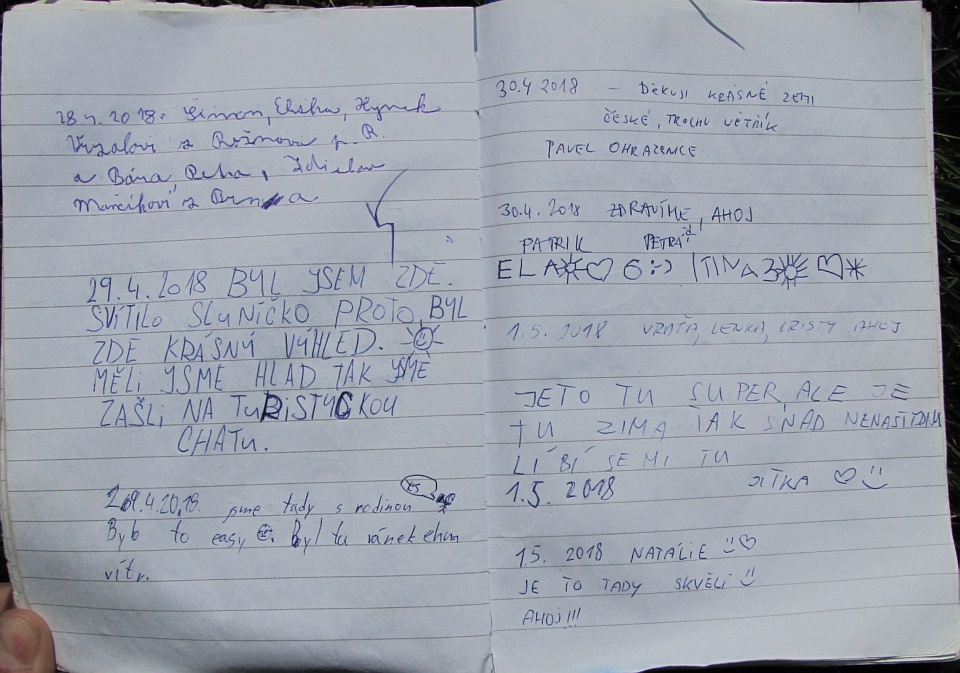 28.4.2018. Šimon, Eliška, Hynek
z Rožnova p. R.
a Bára, Péťa, Zdislav
Marčíkovi z Brna
29.4.2018 BYL JSEM ZDE.
SVÍTILO SLUNÍČKO PROTO BYL
ZDE KRÁSNÝ VÝHLED.
MĚLI JSME HLAD TAK JSME
ZAŠLI NA TURISTYCKOU
CHATU.
29.4.2018. jsme tady s rodinou
Byb to easy. Byl tu vánek ehm
vítr.
30.4 2018 - DĚKUJI KRÁSNÉ ZEMI
ČESKÉ, TROCHU VĚTŘÍK
PAVEL OHRAZENICE
30.4. 2018 ZDRAVÍME, AHOJ
PATRIK PETRA
ELA♡ 6 :-) ♡
1.5. 2018 VRAŤA, LENKA, KRISTY AHOJ
JETO TU SUPER, ALE JE
TU ZIMA TAK SNAD NENASTYDNU
LÍBÍ SE MI TU
1.5. 2018 JITKA ♡ :)
1.5. 2018 NATÁLIE :) ♡
JE TO TADY SKVĚLÍ :)
AHOJ!!!